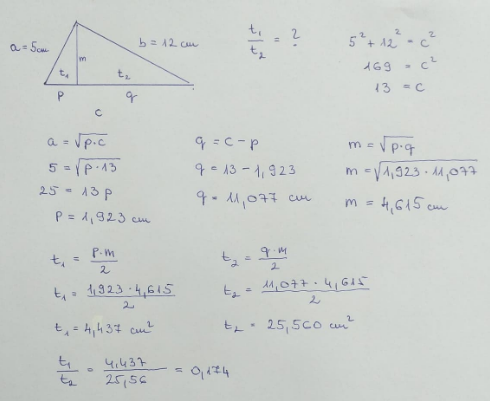 a = 5cm
b = 12 cm
m
t₁
t₂
p
q
c
t₁/t₂ = ?
5² + 12² = c²
169 = c²
13 = c
a = √(p·c)
5 = √(p·13)
25 = 13p
p = 1,923 cm
q = c - p
q = 13 - 1,923
q = 11,077 cm
m = √(p·q)
m = √(1,923 · 11,077)
m = 4,615 cm
t₁ = p·m/2
t₁ = 1,923 · 4,615/2
t₁ = 4,437 cm²
t₂ = q·m/2
t₂ = 11,077 · 4,615/2
t₂ = 25,560 cm²
t₁/t₂ = 4,437/25,56 = 0,174